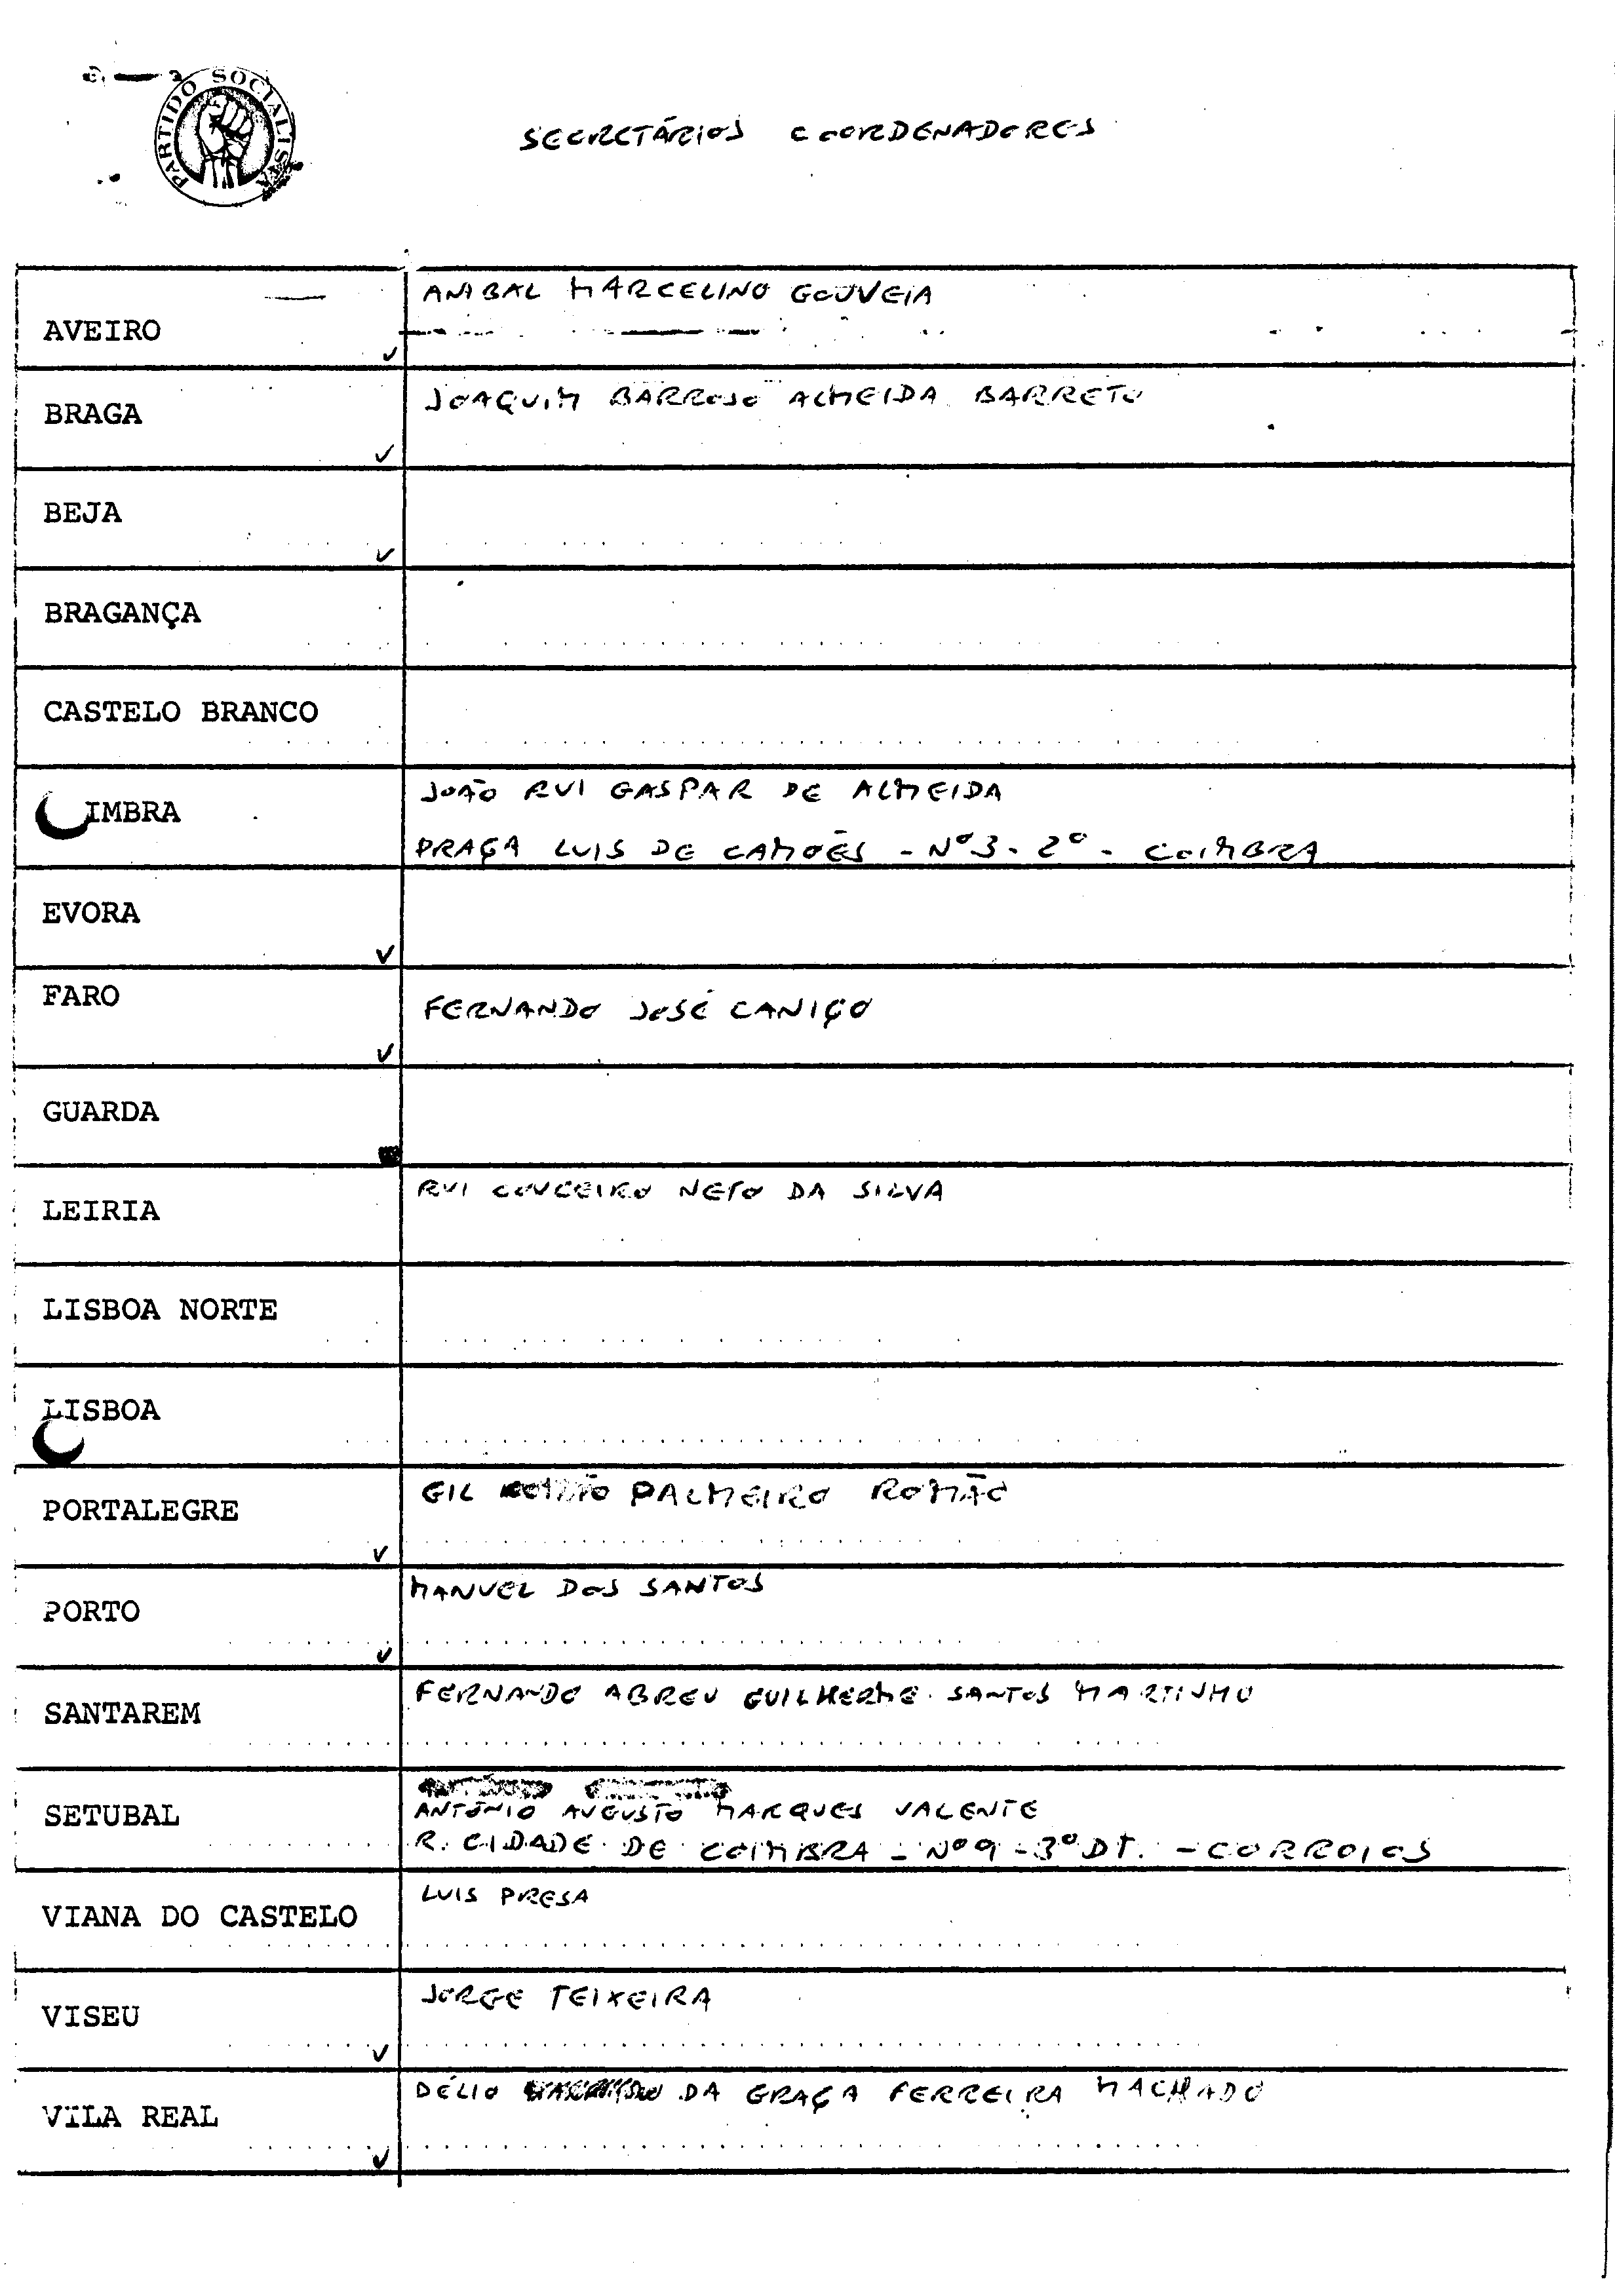 PARTIDO SOCIALISTA
SECRETÁRIOS COORDENADORES
AVEIRO
ANIBAL MARCELINO GOUVEIA
BRAGA
JOAQUIM BARROSO ALMEIDA BARRETO
BEJA
BRAGANÇA
CASTELO BRANCO
IMBRA
JOÃO RUI GASPAR DE ALMEIDA
PRAÇA LUIS DE CAMÕES - Nº 3 - 2º - COIMBRA
EVORA
FARO
FERNANDO JOSÉ CANIÇO
GUARDA
LEIRIA
RUI COUCEIRO NETO DA SILVA
LISBOA NORTE
LISBOA
PORTALEGRE
GIL PALMEIRO ROMÃO
PORTO
MANUEL DOS SANTOS
SANTAREM
FERNANDO ABREU GUILHERME SANTOS MARTINHO
SETUBAL
ANTÓNIO AUGUSTO MARQUES VALENTE
R. CIDADE DE COIMBRA - Nº 9 - 3º DT. - CORROIOS
VIANA DO CASTELO
LUIS PRESA
VISEU
JORGE TEIXEIRA
VILA REAL
DÉLIO DA GRAÇA FERREIRA MACHADO